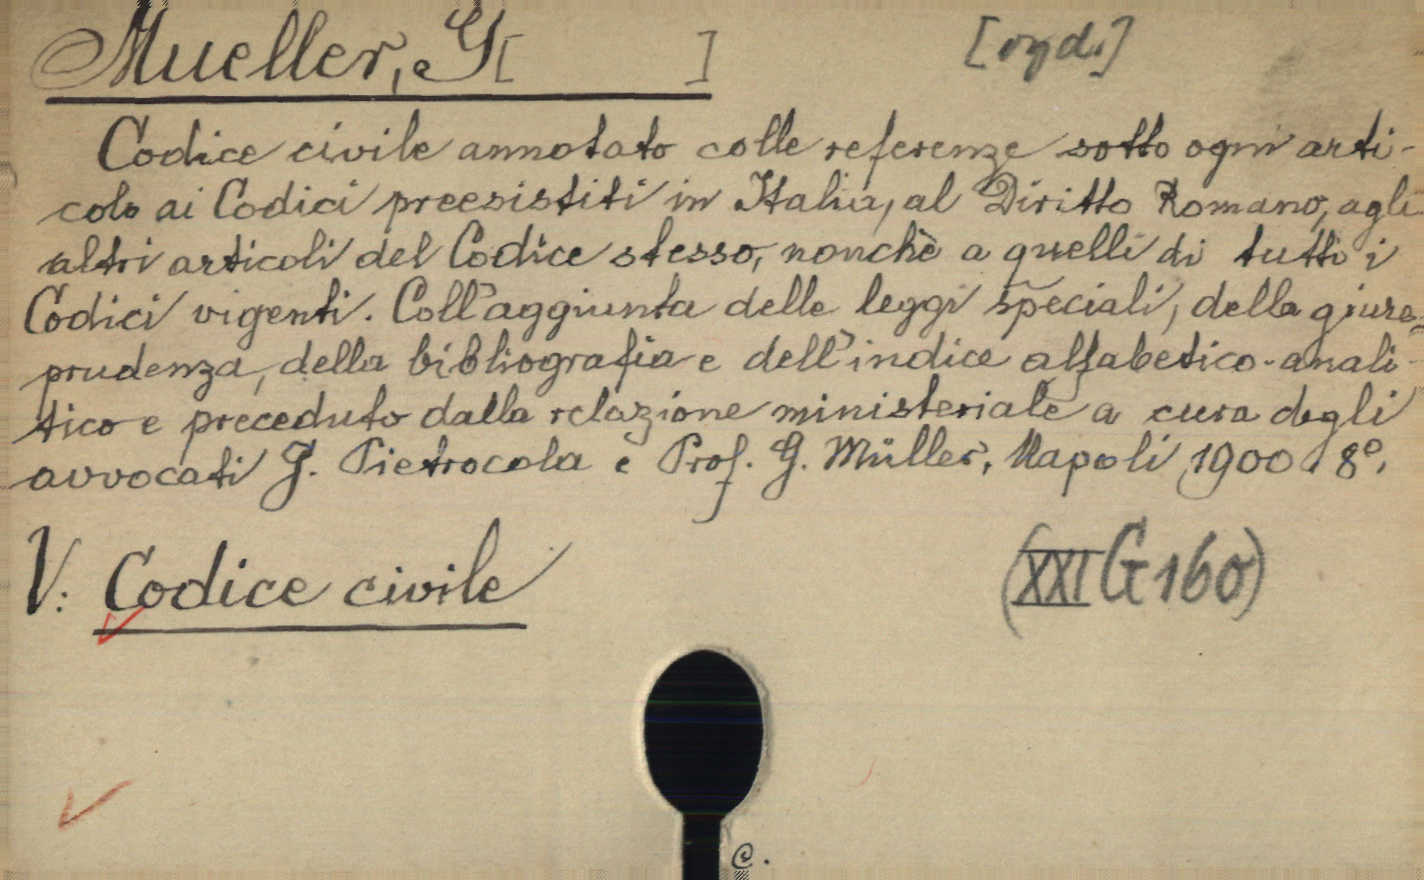 Mueller, G[ ] [wyd.]
Codice civile annotato colle referenze sotto ogni arti-
colo ai Codici preesistiti in Italia, al Diritto Romano, agli
altri articoli del Codice stesso, nonchè a quelli di tutti i
Codici vigenti. Coll'aggiunta delle leggi speciali, della giure-
prudenza, della bibliografia e dell'indice alfabetico-anali-
tico e preceduto dalla relazione ministeriale a cura degli
avvocati G. Pietrocola e Prof. G. Müller. Napoli 1900. 8º.
V: Codice civile
(XXI G 160)
C.